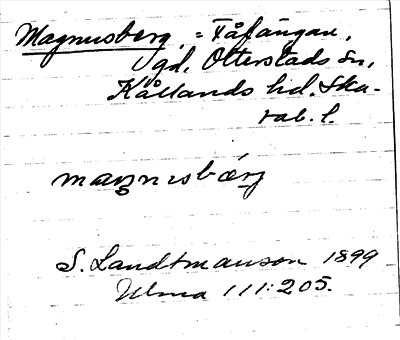 Magnusberg, = Fåfängan,
gd, Otterstads sn,
Kållands hd. Ska-
rab. l.
magnusbärj
S. Landtmanson 1899
Ulma 111:205.